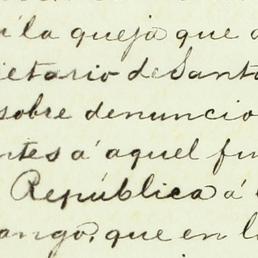 í la queja que
etario de Santa
sobre denuncio
ntes á aquel fun
República á
ango, que en l